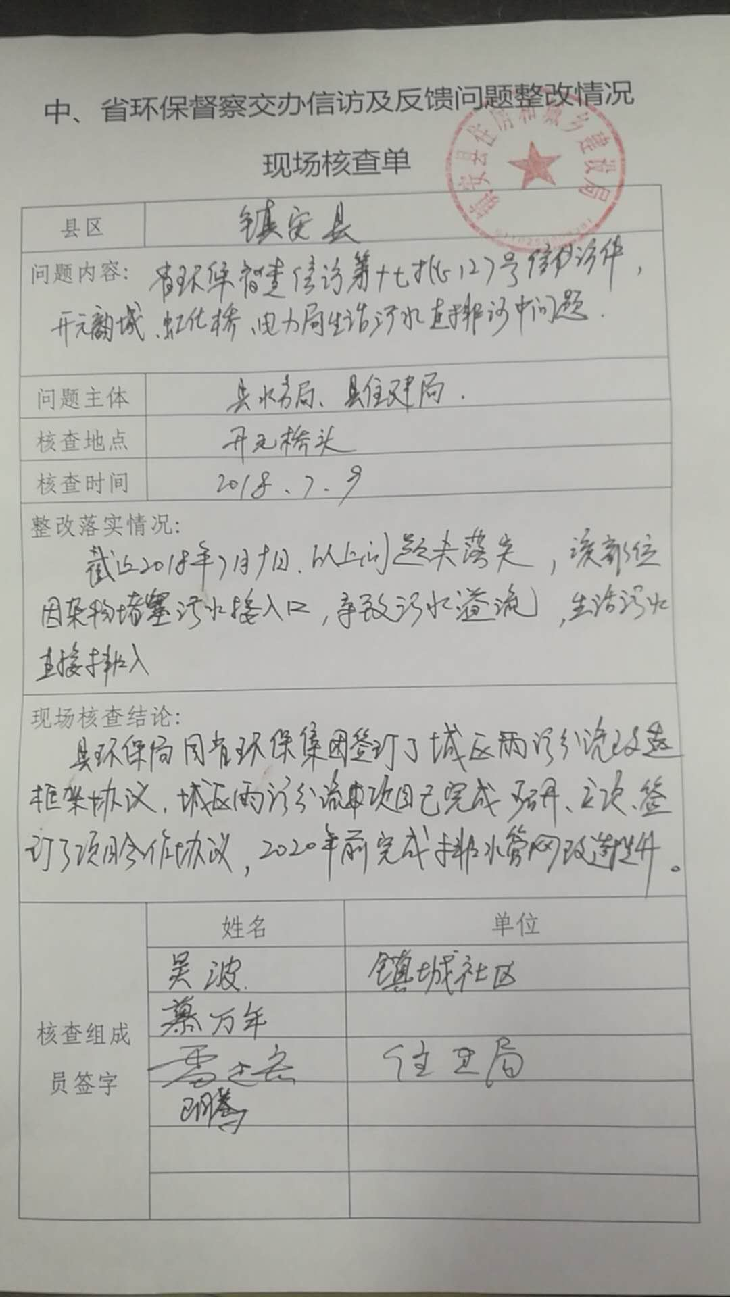 中、省环保督察交办信访及反馈问题整改情况
现场核查单
镇安县住房和城乡建设局
县区 镇安县
问题内容: 省环保督查信访第十七批127号信访件,
开元韵城、虹化桥、电力局生活污水直排河中问题.
问题主体 县水务局、县住建局.
核查地点 开元桥头
核查时间 2018.7.9
整改落实情况:
截止2018年7月9日,以上问题未落实,该部位
因杂物堵塞污水接入口,导致污水溢流,生活污水
直接排入
现场核查结论:
县环保局同省环保集团签订了城区雨污分流改造
框架协议,城区雨污分流项目已完成可研、立项、签
订了项目合作协议,2020年前完成排水管网改造提升。
姓名 单位
吴波 镇城社区
慕万年
核查组成
员签字
住建局